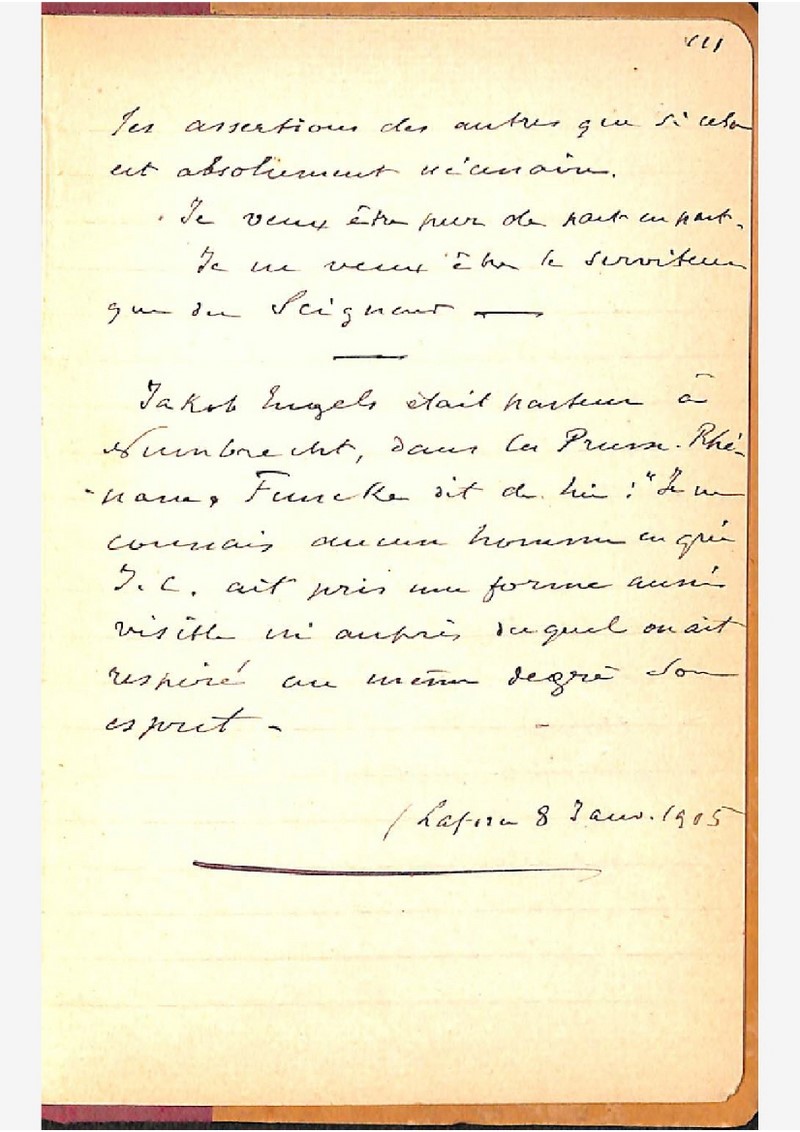 VII
les assertions des autres que si cela
est absolument nécessaire.
Je veux être pur de part en part.
Je ne veux être le serviteur
que du Seigneur —
Jakob Engels était pasteur à
Numbrecht, dans la Prusse-Rhé-
-nane. Funcke dit de lui : "Je ne
connais aucun homme en qui
J. C. ait pris une forme aussi
visible ni auprès duquel on ait
respiré au même degré son
esprit -
8 Janv. 1905